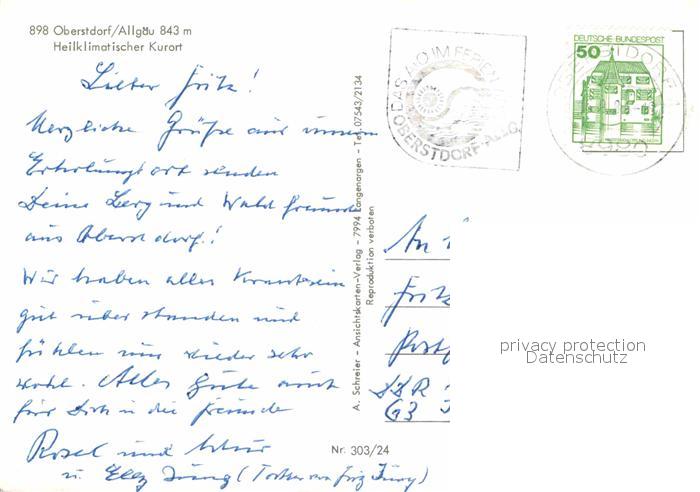 898 Oberstdorf/Allgäu 843 m
Heilklimatischer Kurort
Lieber Fritz!
Herzliche Grüße aus unserem
Erholungsort senden
Deine Berg und Wald freunde
aus Oberstdorf!
Wir haben alles Kranksein
gut überstanden und
fühlen uns wieder sehr
wohl. Alles Gute auch
für Dich in die Freunde
Rosel und
u. Elly Jung (Tochter von Fritz Jung)
A. Schreier - Ansichtskarten-Verlag - 7994 Langenargen - Tel. 07543/2134
Reproduktion verboten
Nr. 303/24
DAS IM FERIEN
OBERSTDORF
DEUTSCHE BUNDESPOST
50
OBERSTDORF 1
8980
An
Fritz
Post
privacy protection
Datenschutz